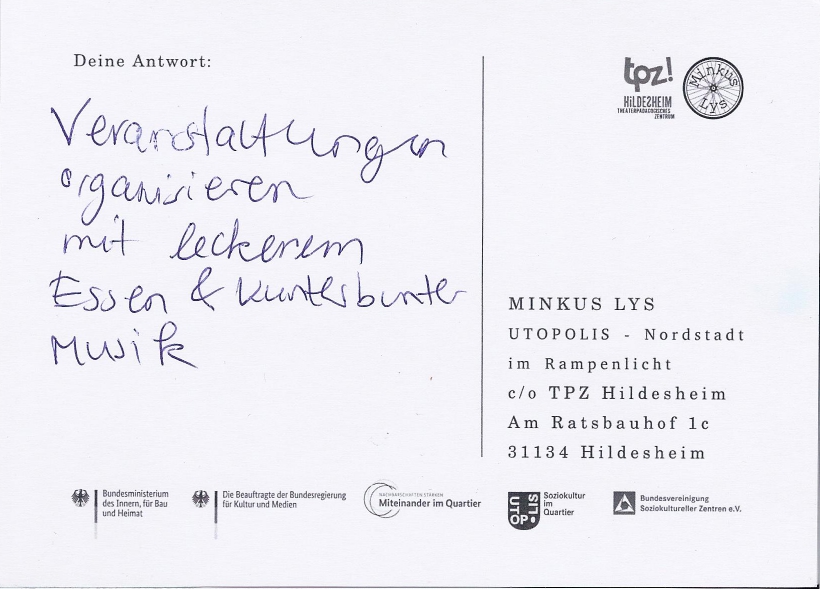 Deine Antwort:
Veranstaltungen
organisieren
mit leckerem
Essen & kunterbunter
Musik
tpz!
HiLDESHEIM
THEATERPÄDAGOGISCHES
ZENTRUM
Minkus
Lys
MINKUS LYS
UTOPOLIS - Nordstadt
im Rampenlicht
c/o TPZ Hildesheim
Am Ratsbauhof 1c
31134 Hildesheim
Bundesministerium
des Innern, für Bau
und Heimat
Die Beauftragte der Bundesregierung
für Kultur und Medien
NACHBARSCHAFTEN STÄRKEN
Miteinander im Quartier
UTOPOLIS
Soziokultur
im
Quartier
Bundesvereinigung
Soziokultureller Zentren e.V.